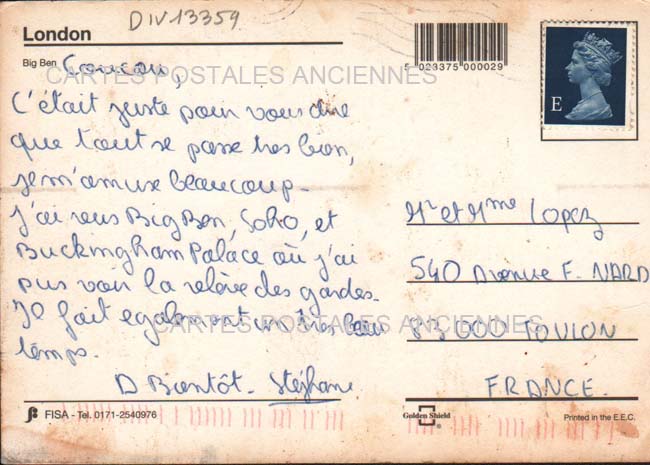 DIV13359
London
Big Ben
Coucou,
C'était juste pour vous dire
que tout se passe tres bien,
je m'amuse beaucoup.
J'ai vus Big Ben, Soho, et
Buckingham Palace où j'ai
pus voir la relève des gardes.
Il fait egalement un très beau
temps.
A Bientôt. Stéphane
5 023375 000029
E
Mr et Mme Lopez
540 Avenue F. NARD
83000 TOULON
FRANCE.
CARTES POSTALES ANCIENNES
CARTES POSTALES ANCIENNES
FISA - Tel. 0171-2540976
Golden Shield
®
Printed in the E.E.C.